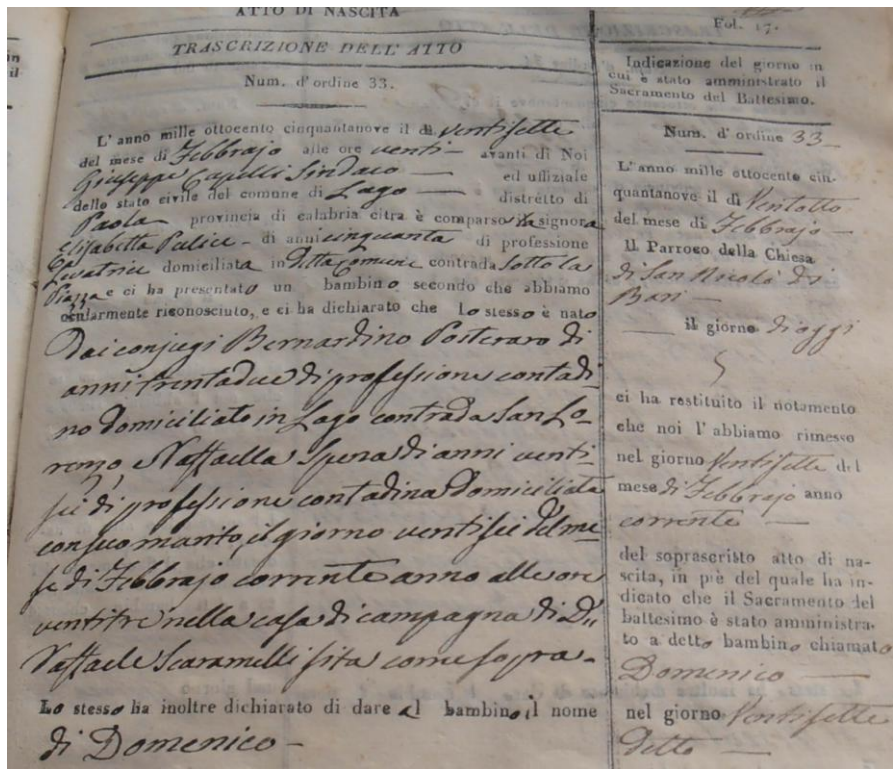 ATTO DI NASCITA
TRASCRIZIONE DELL' ATTO
Num. d'ordine 33.
L'anno mille ottocento cinquantanove il dì ventisette
del mese di Febbrajo alle ore venti avanti di Noi
Giuseppe Cupelli Sindaco ed uffiziale
dello stato civile del comune di Lago distretto di
Paola provincia di calabria citra è comparso la signora
Elisabetta Pulice di anni cinquanta di professione
Levatrice domiciliata in detta Comune contrada Sotto la
Piazza e ci ha presentato un bambino secondo che abbiamo
ocularmente riconosciuto, e ci ha dichiarato che Lo stesso è nato
Dai conjugi Bernardino Posteraro di
anni trentadue di professione contadi-
no domiciliato in Lago contrada San Lo-
renzo e Raffaella Spena di anni venti-
sei di professione contadina domiciliata
con suo marito, il giorno ventisei del me-
se di Febbrajo corrente anno alle ore
ventitre nella casa di campagna di D.n
Raffaele Scaramelli sita come sopra-
Lo stesso ha inoltre dichiarato di dare al bambino il nome
di Domenico-
Fol. 17.
Indicazione del giorno in
cui è stato amministrato il
Sacramento del Battesimo.
Num. d'ordine 33
L'anno mille ottocento cin-
quantanove il dì Ventotto
del mese di Febbrajo
il Parroco della Chiesa
di San Nicolà di
Bari
il giorno di oggi
ci ha restituito il notamento
che noi l'abbiamo rimesso
nel giorno Ventisette del
mese di Febbrajo anno
corrente
del soprascritto atto di na-
scita, in piè del quale ha in-
dicato che il Sacramento del
battesimo è stato amministra-
to a detto bambino chiamato
Domenico
nel giorno Ventisette
detto